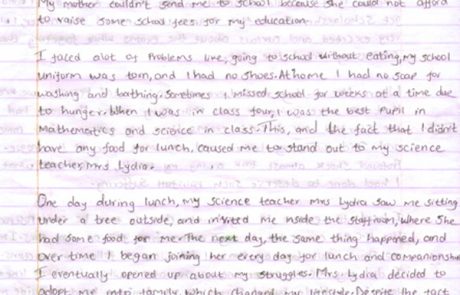 My mother couldn't send me to school because she could not afford
to raise some school fees for my education.
I faced alot of Problems like, going to school without eating, my school
uniform was torn, and I had no shoes. At home I had no soap for
washing and bathing. Sometimes I missed school for weeks at a time due
to hunger. When I was in class four, I was the best Pupil in
Mathematics and science in class. This, and the fact that I didn't
have any food for lunch, caused me to stand out to my science
teacher, mrs Lydia.
One day during lunch, my science teacher mrs Lydia saw me sitting
under a tree outside, and invited me inside the staffroom, where She
had some food for me. The next day, the same thing happened, and
over time I began joining her every day for lunch and companionship
I eventually opened up about my struggles. Mrs. Lydia decided to
adopt me into family which changed our lifestyle. Despite the fact